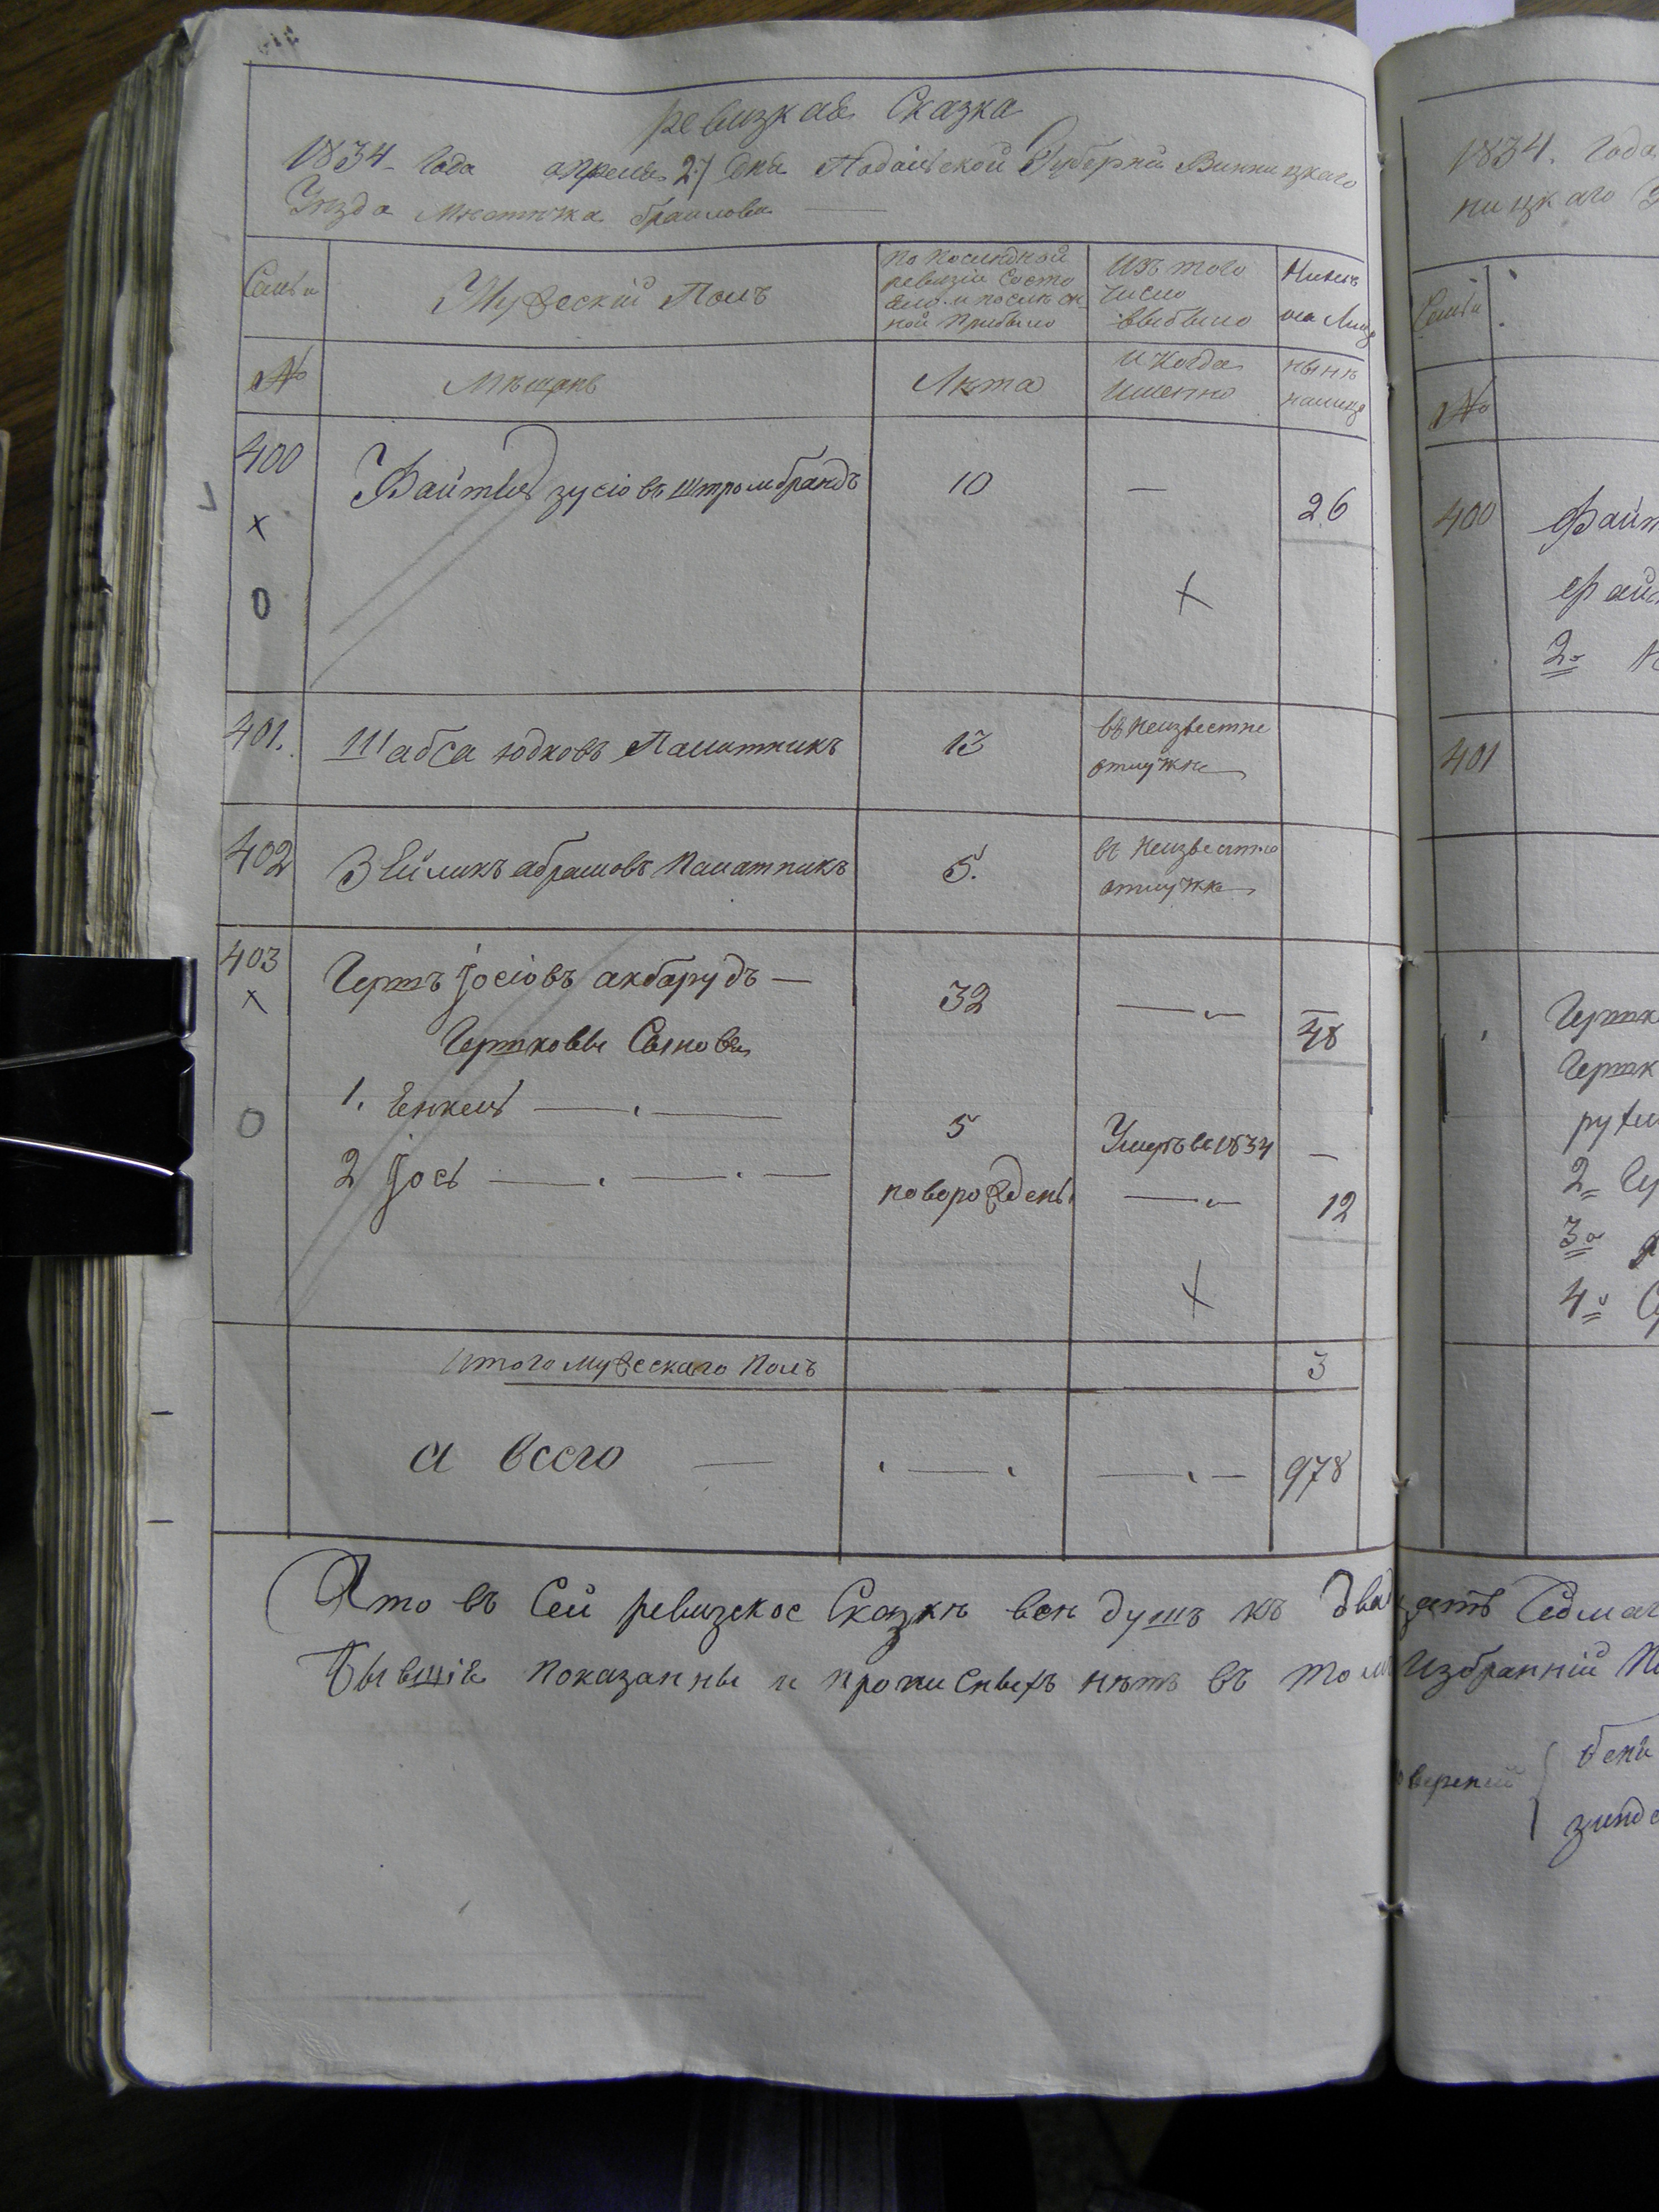 ревизкая Сказка
1834 Года апреля 27 дня Подольской Губерній Винницкаго
Уезда Местечка браилова
Семьи
Мужескій Полъ
По последной
ревизіи Состо
яло и после он
ной Прибыло
Изъ того
число
выбыло
Ныне
на Лице
№
Мещане
Лета
и Когда
именно
ныне
налице
400
Файтель зусіовъ штромбрандъ
10
—
26
401.
Шабса юдковъ Палатникъ
13
въ Неизвестне
отлучке
402
Зейликъ абрамовъ Палатникъ
5.
въ Неизвестно
отлучке
403
Герть Іосіовъ акбарудъ —
32
48
Гершковы Сыновя
1. Енкель
5
Умеръ въ 1834
—
2 Іось
новорожденъ
12
итого мужескаго Полъ
3
а всего
978
Что въ Сей ревизское Сказке все душъ къ двадцать Седмаг
бывшіе показанны и прописныхъ нетъ въ томъ избранній По
1834. Года
ницкаго
Семьи
№
400
файт
2
401
Гершк
Гершк
2
3
4
верений
бень